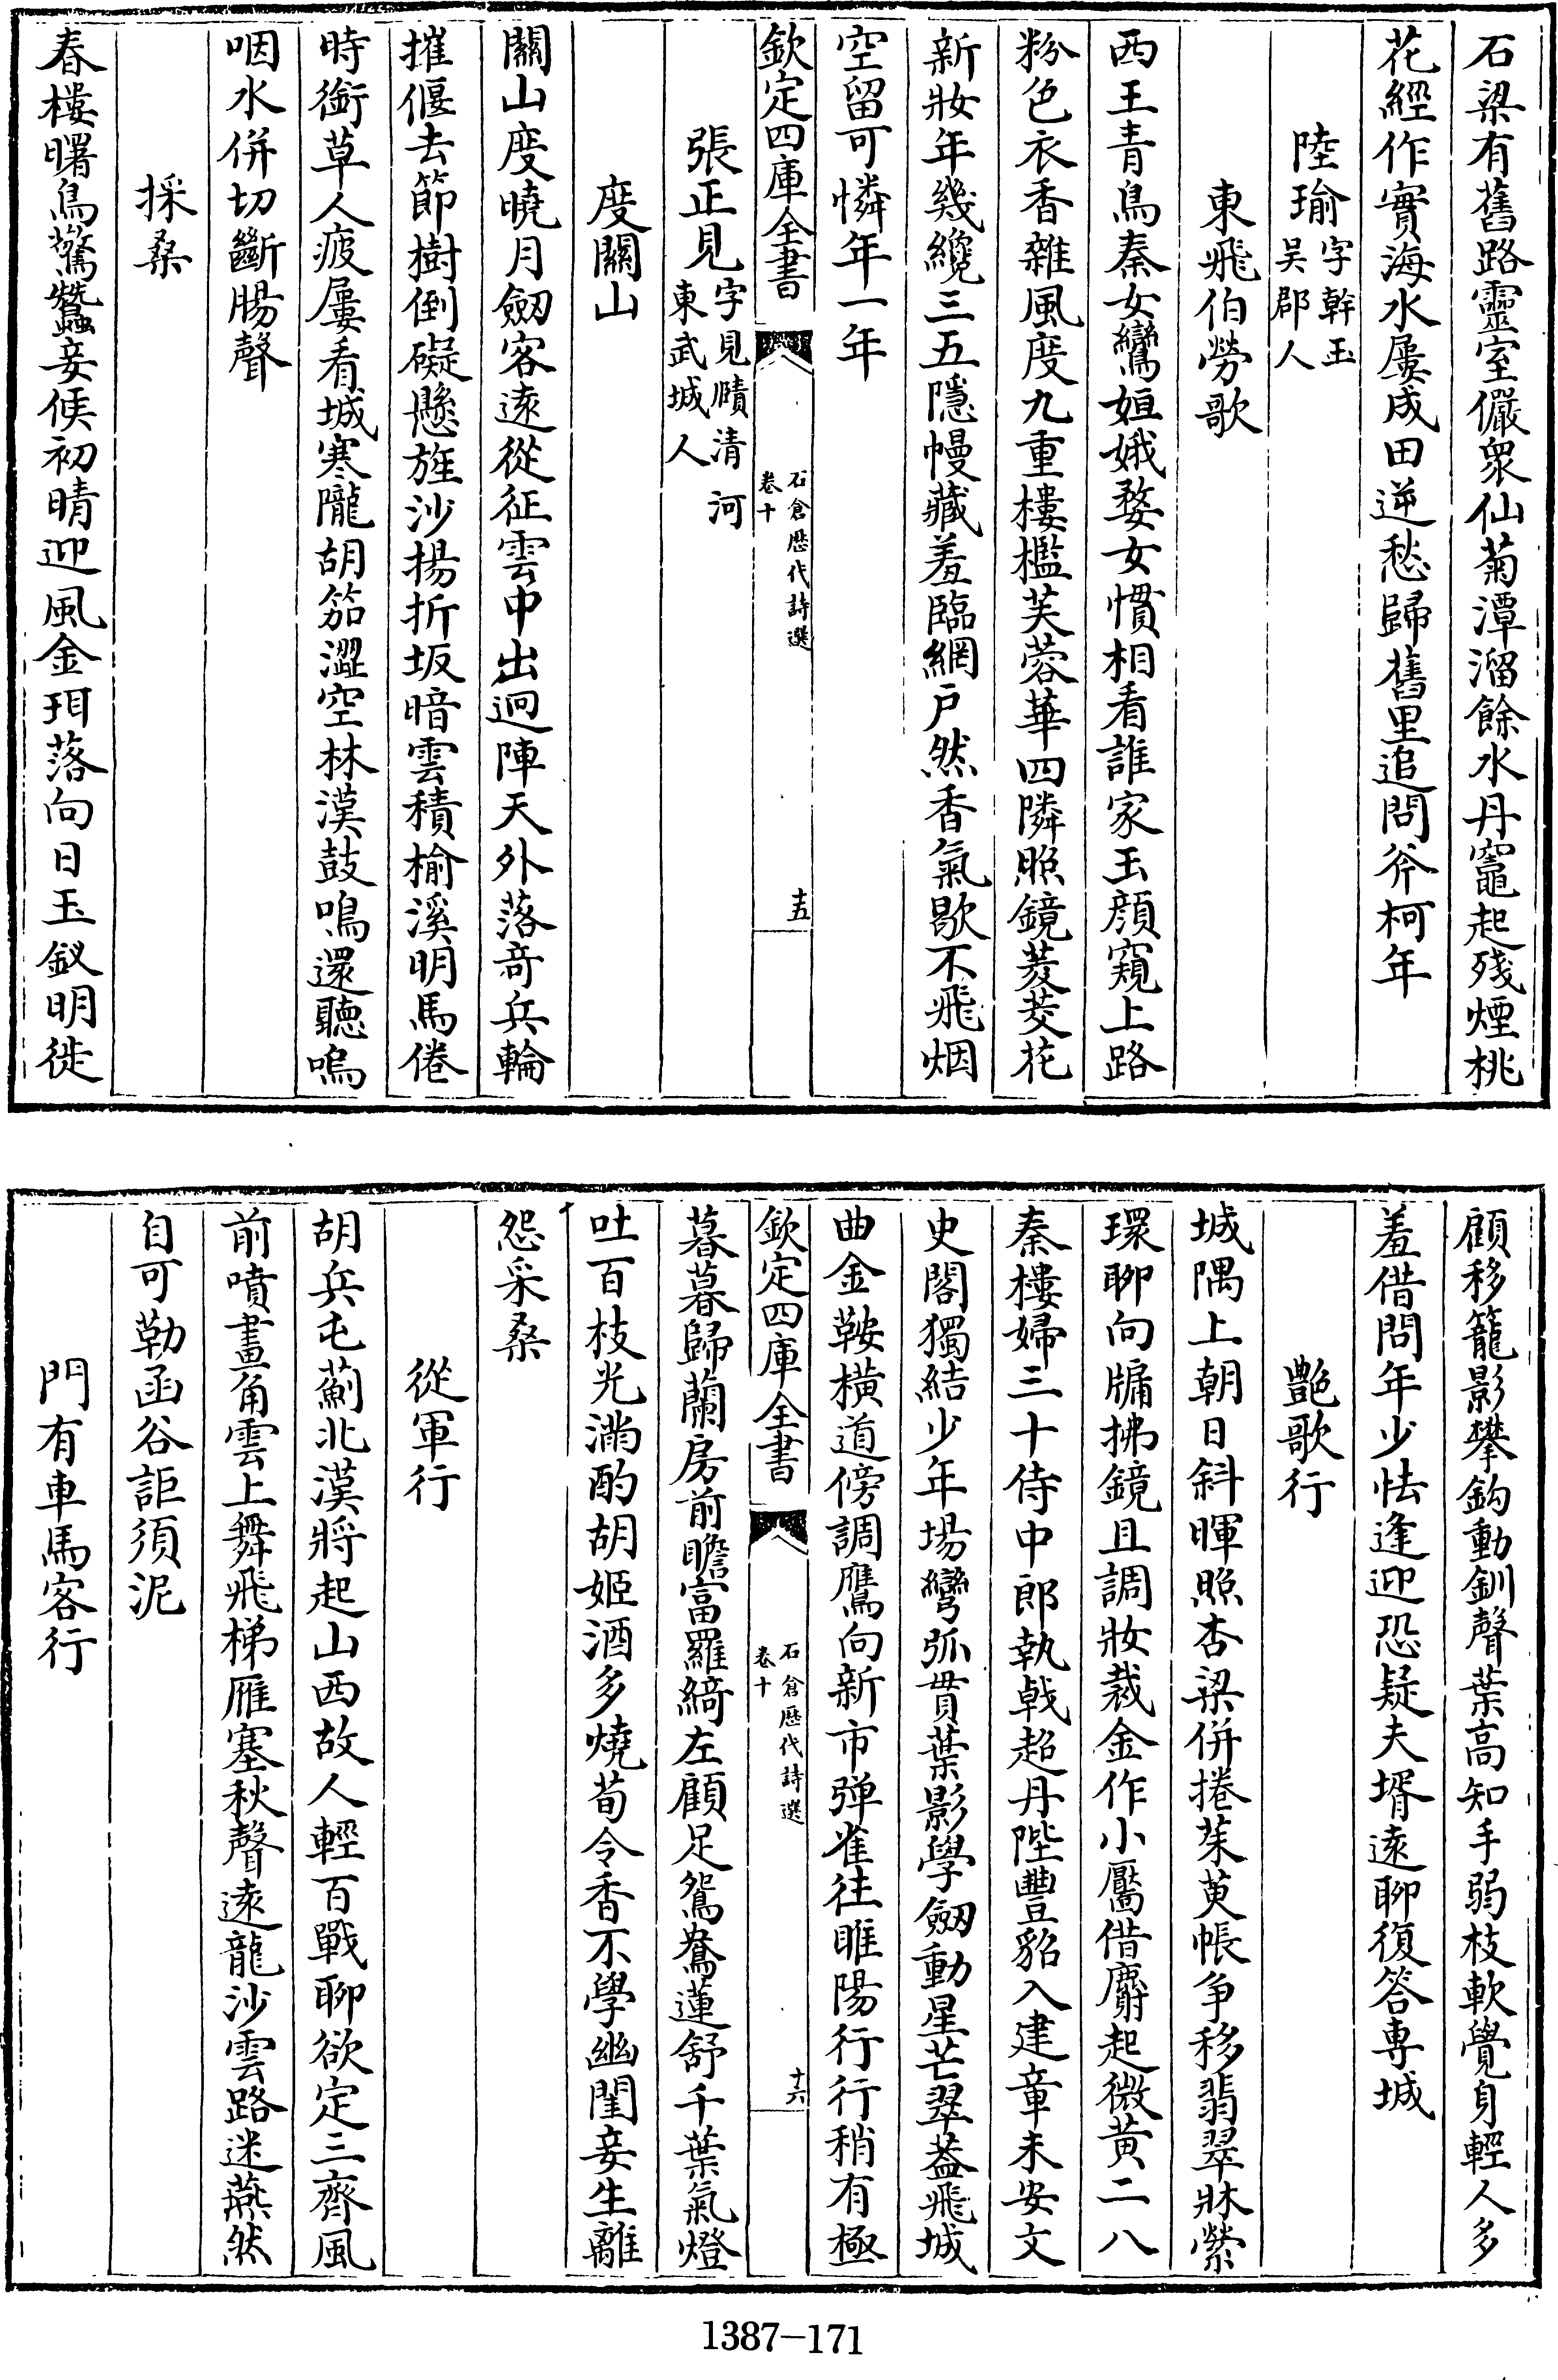 石梁有舊路靈室儼衆仙菊潭溜餘水丹竈起殘煙桃
花經作實海水屢成田逆愁歸舊里追問斧柯年
陸瑜字幹玉吳郡人
東飛伯勞歌
西王青鳥秦女鸞姮娥婺女慣相看誰家玉顔窺上路
粉色衣香雜風度九重樓檻芙蓉華四隣照鏡菱茭花
新妝年幾纔三五隱幔藏羞臨網户然香氣歇不飛烟
空留可憐年一年
欽定四庫全書
石倉歷代詩選
卷十
十五
張正見字見賾清河東武城人
度關山
關山度曉月劒客遠從征雲中出迥陣天外落竒兵輪
摧偃去節樹倒礙懸旌沙揚折坂暗雲積榆溪明馬倦
時銜草人疲屢看城寒隴胡笳澀空林漢鼓鳴還聽嗚
咽水併切斷腸聲
採桑
春樓曙鳥驚蠶妾候初晴迎風金珥落向日玉釵明徙
顧移籠影攀鈎動釧聲葉高知手弱枝軟覺身輕人多
羞借問年少怯逢迎恐疑夫壻遠聊復答専城
艶歌行
城隅上朝日斜暉照杏梁併捲茱萸帳争移翡翠牀縈
環聊向牖拂鏡且調妝裁金作小靨借麝起微黄二八
秦樓婦三十侍中郎執戟超丹陛豐貂入建章未安文
史閣獨結少年場彎弧貫葉影學劒動星芒翠葢飛城
曲金鞍横道傍調鷹向新市弹雀往睢陽行行稍有極
欽定四庫全書
石倉歷代詩選
卷十
十六
暮暮歸蘭房前瞻富羅綺左顧足鴛鴦蓮舒千葉氣燈
吐百枝光滿酌胡姬酒多燒荀令香不學幽閨妾生離
怨采桑
從軍行
胡兵屯薊北漢將起山西故人輕百戰聊欲定三齊風
前噴畫角雲上舞飛梯雁塞秋聲遠龍沙雲路迷燕然
自可勒函谷詎須泥
門有車馬客行
1387-171